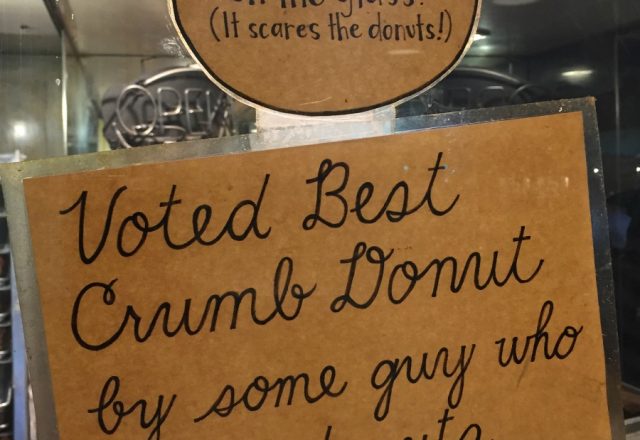 on the glass!
(It scares the donuts!)
OPEN
Voted Best
Crumb Donut
by some guy who